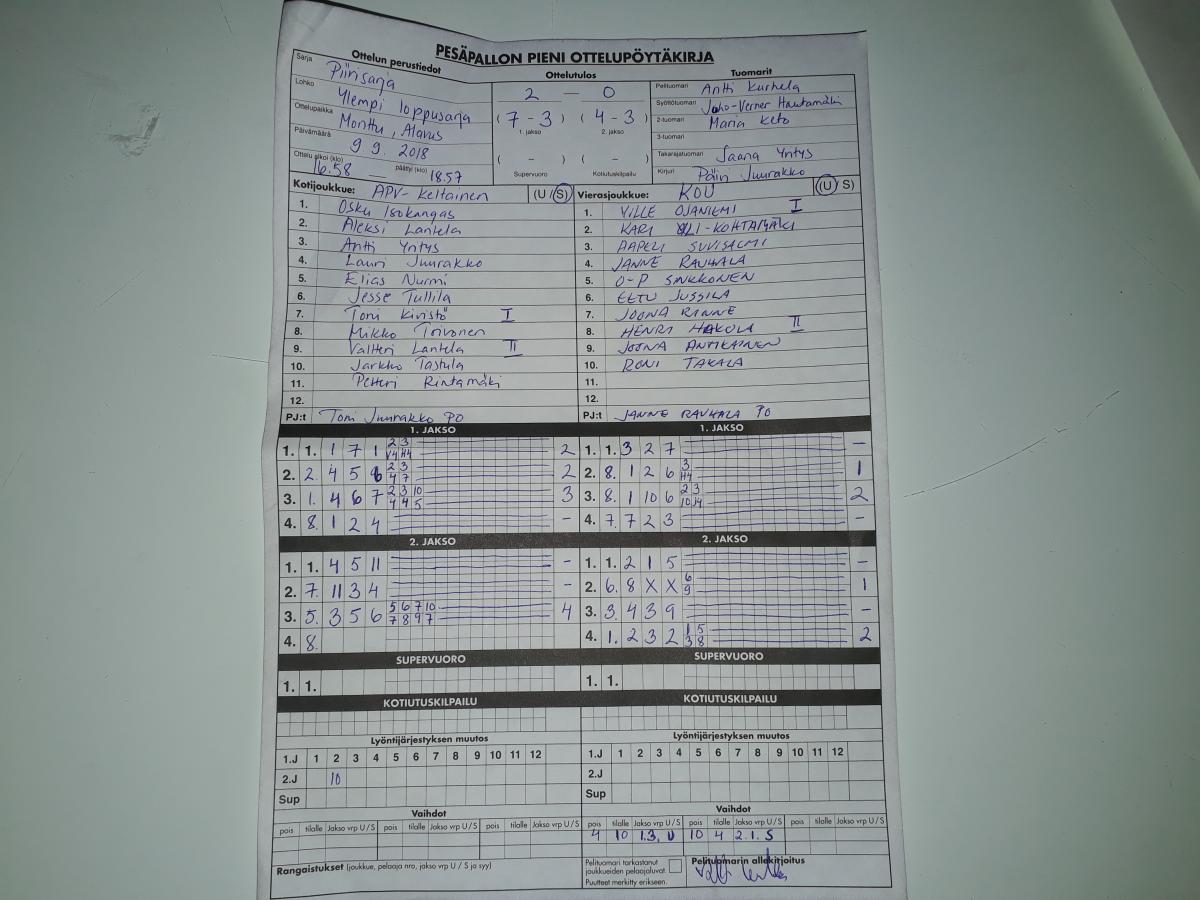 PESÄPALLON PIENI OTTELUPÖYTÄKIRJA
Ottelun perustiedot
Sarja Piirisarja
Lohko Ylempi loppusarja
Ottelupaikka Monttu, Alavus
Päivämäärä 9 9. 2018
Ottelu alkoi (klo) 16.58 — päättyi (klo) 18.57
Ottelutulos
2 — 0
(7 - 3) (4 - 3)
1. jakso 2. jakso
( - ) ( - )
Supervuoro Kotiutuskilpailu
Tuomarit
Pelituomari Antti Kurhela
Syöttötuomari Juho-Verner Hautamäki
2-tuomari Maria Keto
3-tuomari
Takarajatuomari Saana Yritys
Kirjuri Päivi Juurakko
Kotijoukkue: APV- Keltainen (U / S)
1. Osku Isokangas
2. Aleksi Lantela
3. Antti Yritys
4. Lauri Juurakko
5. Elias Nurmi
6. Jesse Tullila
7. Toni Kivistö I
8. Mikko Toivonen
9. Valtteri Lantela II
10. Jarkko Tastula
11. Petteri Rintamäki
12.
PJ:t Toni Juurakko PO
Vierasjoukkue: KOU (U / S)
1. VILLE OJANIEMI I
2. KARI YLI-KOHTAMÄKI
3. AAPELI SUVISALMI
4. JANNE RAUHALA
5. O-P SINKKONEN
6. EETU JUSSILA
7. JOONA RINNE
8. HENRI HAKOLA II
9. JOONA ANTIKAINEN
10. RONI TAKALA
11.
12.
PJ:t JANNE RAUHALA PO
1. JAKSO
1. 1. 1 7 1 2 3 V4 H4 2
2. 2. 4 5 6 2 3 4 7 2
3. 1. 4 6 7 2 3 10 4 4 5 3
4. 8. 1 2 4 -
1. JAKSO
1. 1. 3 2 7 -
2. 8. 1 2 6 3 H4 1
3. 8. 1 10 6 2 3 10 J4 2
4. 7. 7 2 3 -
2. JAKSO
1. 1. 4 5 11 -
2. 7. 11 3 4 -
3. 5. 3 5 6 5 6 7 10 7 8 9 7 4
4. 8.
2. JAKSO
1. 1. 2 1 5 -
2. 6. 8 X X 6 9 1
3. 3. 4 3 9 -
4. 1. 2 3 2 1 5 3 8 2
SUPERVUORO
1. 1.
SUPERVUORO
1. 1.
KOTIUTUSKILPAILU
KOTIUTUSKILPAILU
Lyöntijärjestyksen muutos
1.J 1 2 3 4 5 6 7 8 9 10 11 12
2.J 10
Sup
Lyöntijärjestyksen muutos
1.J 1 2 3 4 5 6 7 8 9 10 11 12
2.J
Sup
Vaihdot
pois tilalle Jakso vrp U / S pois tilalle Jakso vrp U / S pois tilalle Jakso vrp U / S
Vaihdot
pois tilalle Jakso vrp U / S pois tilalle Jakso vrp U / S pois tilalle Jakso vrp U / S
4 10 1.3, U 10 4 2.1. S
Rangaistukset (joukkue, pelaaja nro, jakso vrp U / S ja syy)
Pelituomari tarkastanut
joukkueiden pelaajaluvat.
Puutteet merkitty erikseen.
Pelituomarin allekirjoitus